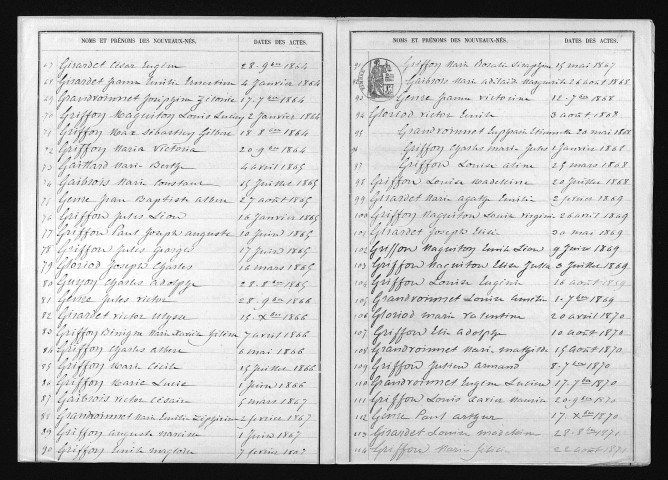 NOMS ET PRÉNOMS DES NOUVEAUX-NÉS. DATES DES ACTES.
67 Girardet Cesar Eugène 28-9bre 1864
68 Girardet Jeanne Emilie Ernestine 4 Janvier 1864
69 Grandvoinnet Josephine Zélonie 17-7bre 1864
70 Griffon Maguiton Louis Lucien 2 Janvier 1864
71 Griffon Max Sébastien 18-8bre 1864
72 Griffon Maria Victoria 20-9bre 1864
73 Gaillard Marie Berthe 4 avril 1865
74 Gaibrois Marie Constance 15 Juillet 1865
75 Gense Jean Baptiste Albin 27 août 1865
76 Griffon Jules Léon 16 Janvier 1865
77 Griffon Paul Joseph auguste 10 Juin 1865
78 Griffon Jules George 7 Juin 1865
79 Gloriod Joseph Charles 16 mars 1865
80 Guyon Charles adolphe 28-8bre 1865
81 Gense Jules Victor 28-9bre 1866
82 Girardet Victor Ulysse 15-Xbre 1866
83 Griffon Marie 7 avril 1866
84 Griffon Charles Albert 6 mai 1866
85 Griffon Marie Cécile 15 Juillet 1866
86 Griffon Marie Lucie 1 Juin 1866
87 Gaibrois Victor Césaire 7 mars 1867
88 Grandvoinnet Marie Emilie 2 fevrier 1867
89 Griffon auguste 1 Juin 1867
90 Griffon Emile 7 fevrier 1867
NOMS ET PRÉNOMS DES NOUVEAUX-NÉS. DATES DES ACTES.
91 Griffon Marie Rosalie 15 mai 1867
Gaibrois Marie 26 août 1868
93 Gense Jeanne Victorine 12-7bre 1868
94 Gloriod Victor Emile 3 août 1868
95 Grandvoinnet 20 mai 1868
96 Griffon Charles Marie Jules 1 Janvier 1868
97 Griffon Louise aline 25 mars 1868
98 Griffon Louise Madeleine 20 Juillet 1868
99 Girardet Marie agathe Emilie 2 fevrier 1869
100 Griffon Maguiton Louise Virginie 26 avril 1869
101 Girardet Joseph Elisé 30 mai 1869
102 Griffon Maguiton Emile Léon 9 Janvier 1869
103 Griffon Maguiton Elise 3 Juillet 1869
104 Griffon Louise Eugénie 16 août 1869
105 Grandvoinnet Louise 1-7bre 1869
106 Gloriod Marie Valentine 20 avril 1870
107 Griffon Elie Adolphe 10 août 1870
108 Grandvoinnet Marie Mathilde 15 août 1870
109 Griffon Julien Armand 8-7bre 1870
110 Grandvoinnet Eugène Lucien 17-7bre 1870
111 Griffon Louis Xavier 20-9bre 1870
112 Gense Paul arthur 17-Xbre 1870
113 Girardet Louise 28-8bre 1871
114 Griffon Marie 22 août 1870